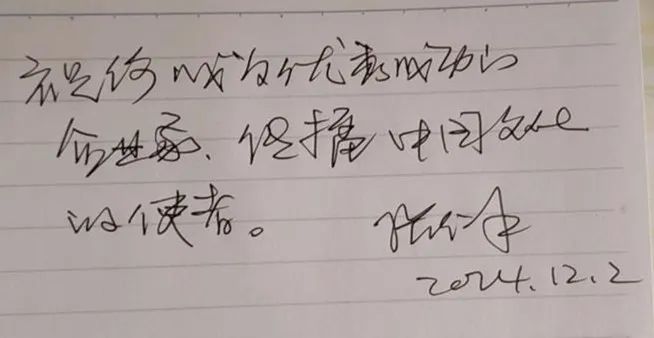 祝你成为优秀成功的
企业家、传播中国文化
的使者。
2024.12.2